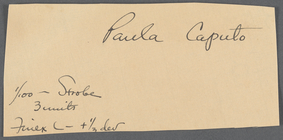 Paula Caputo
1/100 – Strobe
3 units
Finex L – + 1/2 dev